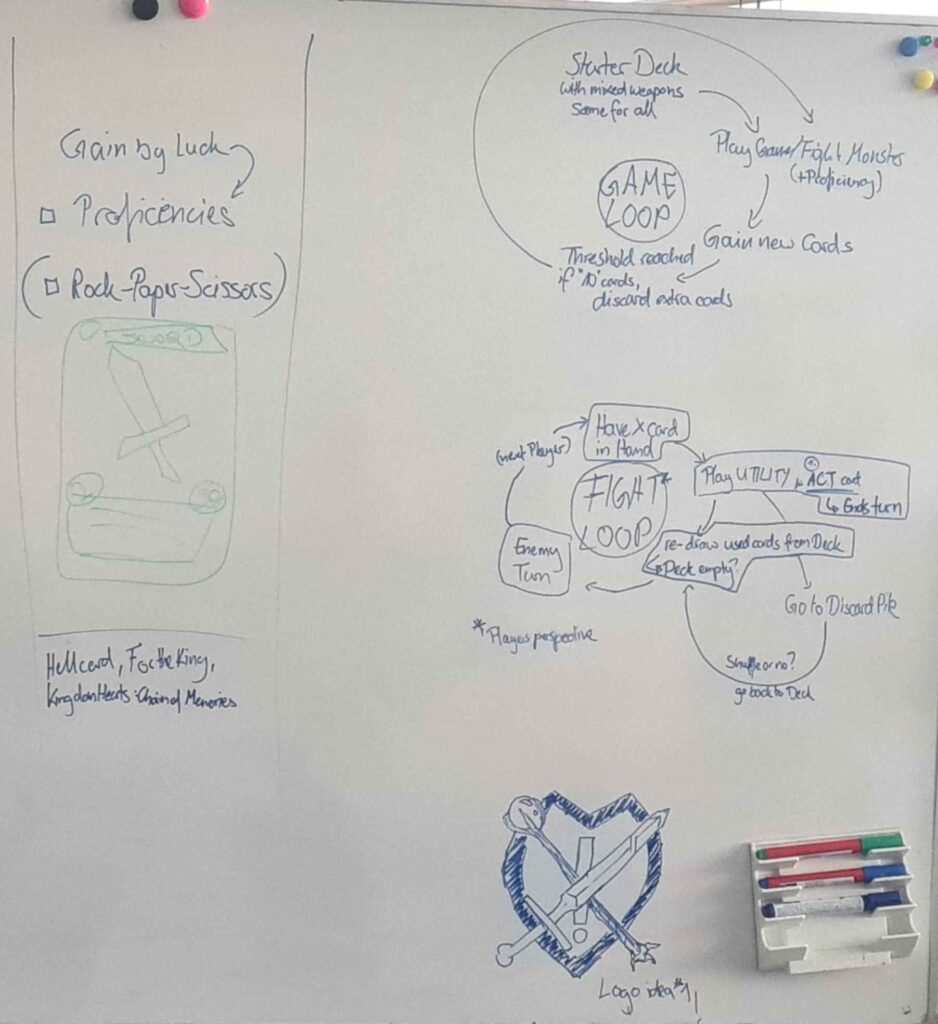 Gain by Luck
Proficencies
(Rock-Paper-Scissors)
Hellcard, For the King,
Kingdom Hearts: Chain of Memories
Starter Deck
with mixed weapons
Same for all
Play Game/Fight Monster
(+Proficiency)
Gain new Cards
Threshold reached
if "10" cards,
discard extra cards
GAME
LOOP
Have X card
in Hand
Play UTILITY + ACT card
↳ Ends turn
re-draw used cards from Deck
↳ Deck empty?
Go to Discard Pile
Shuffle or no?
go back to Deck
Enemy
Turn
(next Player)
FIGHT*
LOOP
*Players perspective
!
Logo idea #1